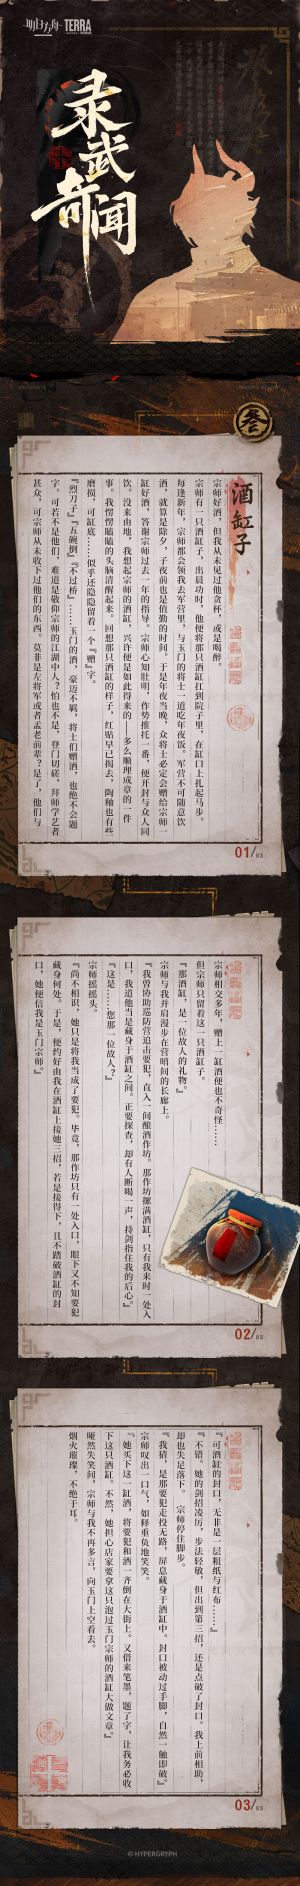 明日方舟 TERRA
录武奇闻
叁
酒缸子
宗师好酒，但我从未见过他贪杯，或是喝醉。
宗师有一只酒缸子，出晨功时，他便将那只酒缸扛到院子里，在缸口上扎起马步。
每逢新年，宗师都会领我去军营里，与玉门的将士一道吃年夜饭。军营不可随意饮
酒，就算是除夕，子夜前也是值勤的时间。于是年夜当晚，众将士必定会赠给宗师一
缸好酒，答谢宗师过去一年的指导。宗师心知肚明，作势推托一番，便开封与众人同
饮。没来由地，我想起宗师的酒缸，兴许便是如此得来的——多么顺理成章的一件
事，我愣愣瞌睡的头脑清醒起来。回想那只酒缸的样子，红贴早已揭去，陶釉也有些
磨损，可缸底……似乎还隐隐留着一个『赠』字。
『烈刀子』『五碗倒』『不过桥』……玉门的酒，豪迈不羁，将士们赠酒，也绝不会题
字。可若不是他们，难道是敬仰宗师的江湖中人？怕也不是，登门切磋、拜师学艺者
甚众，可宗师从未收下过他们的东西。莫非是左将军或者孟老前辈？是了，他们与
01/03
宗师相交多年，赠上一缸酒便也不奇怪……
但宗师只留着这一只酒缸子。
『那酒缸，是一位故人的礼物。』
宗师与我并肩漫步在营哨间的长廊上。
『我曾协助巡防营追击要犯，直入一间酿酒作坊。那作坊摆满酒缸，只有我来时一处入
口，我道他当是藏身于酒缸之间。正要探查，却有人断喝一声，持剑指住我的后心。』
『这是……您那一位故人？』
宗师摇摇头。
『尚不相识，她只是将我当成了要犯。毕竟，那作坊只有一处入口，眼下又不知要犯
藏身何处。于是，便约好由我在酒缸上接她三招，若是接得下，且不踏破酒缸的封
口，她便信我是玉门宗师。』
02/03
『可酒缸的封口，无非是一层粗纸与红布……』
『不错。她的剑招凌厉，步法轻敏，但出到第三招，还是点破了封口。我上前相助，
却也失足落下。』宗师停住脚步。
『我猜，是那要犯走投无路，屏息藏身于酒缸中。封口被动过手脚，自然一触即破。』
宗师叹出一口气，如释重负地笑笑。
『她买下这一缸酒，将要犯和酒一齐倒在大街上。又借来笔墨，题了字，让我务必收
下这只酒缸。不然，她担心店家要拿这只泡过玉门宗师的酒缸大做文章。』
哑然失笑间，宗师与我不再多言，向玉门上空看去。
烟火璀璨，不绝于耳。
03/03
© HYPERGRYPH